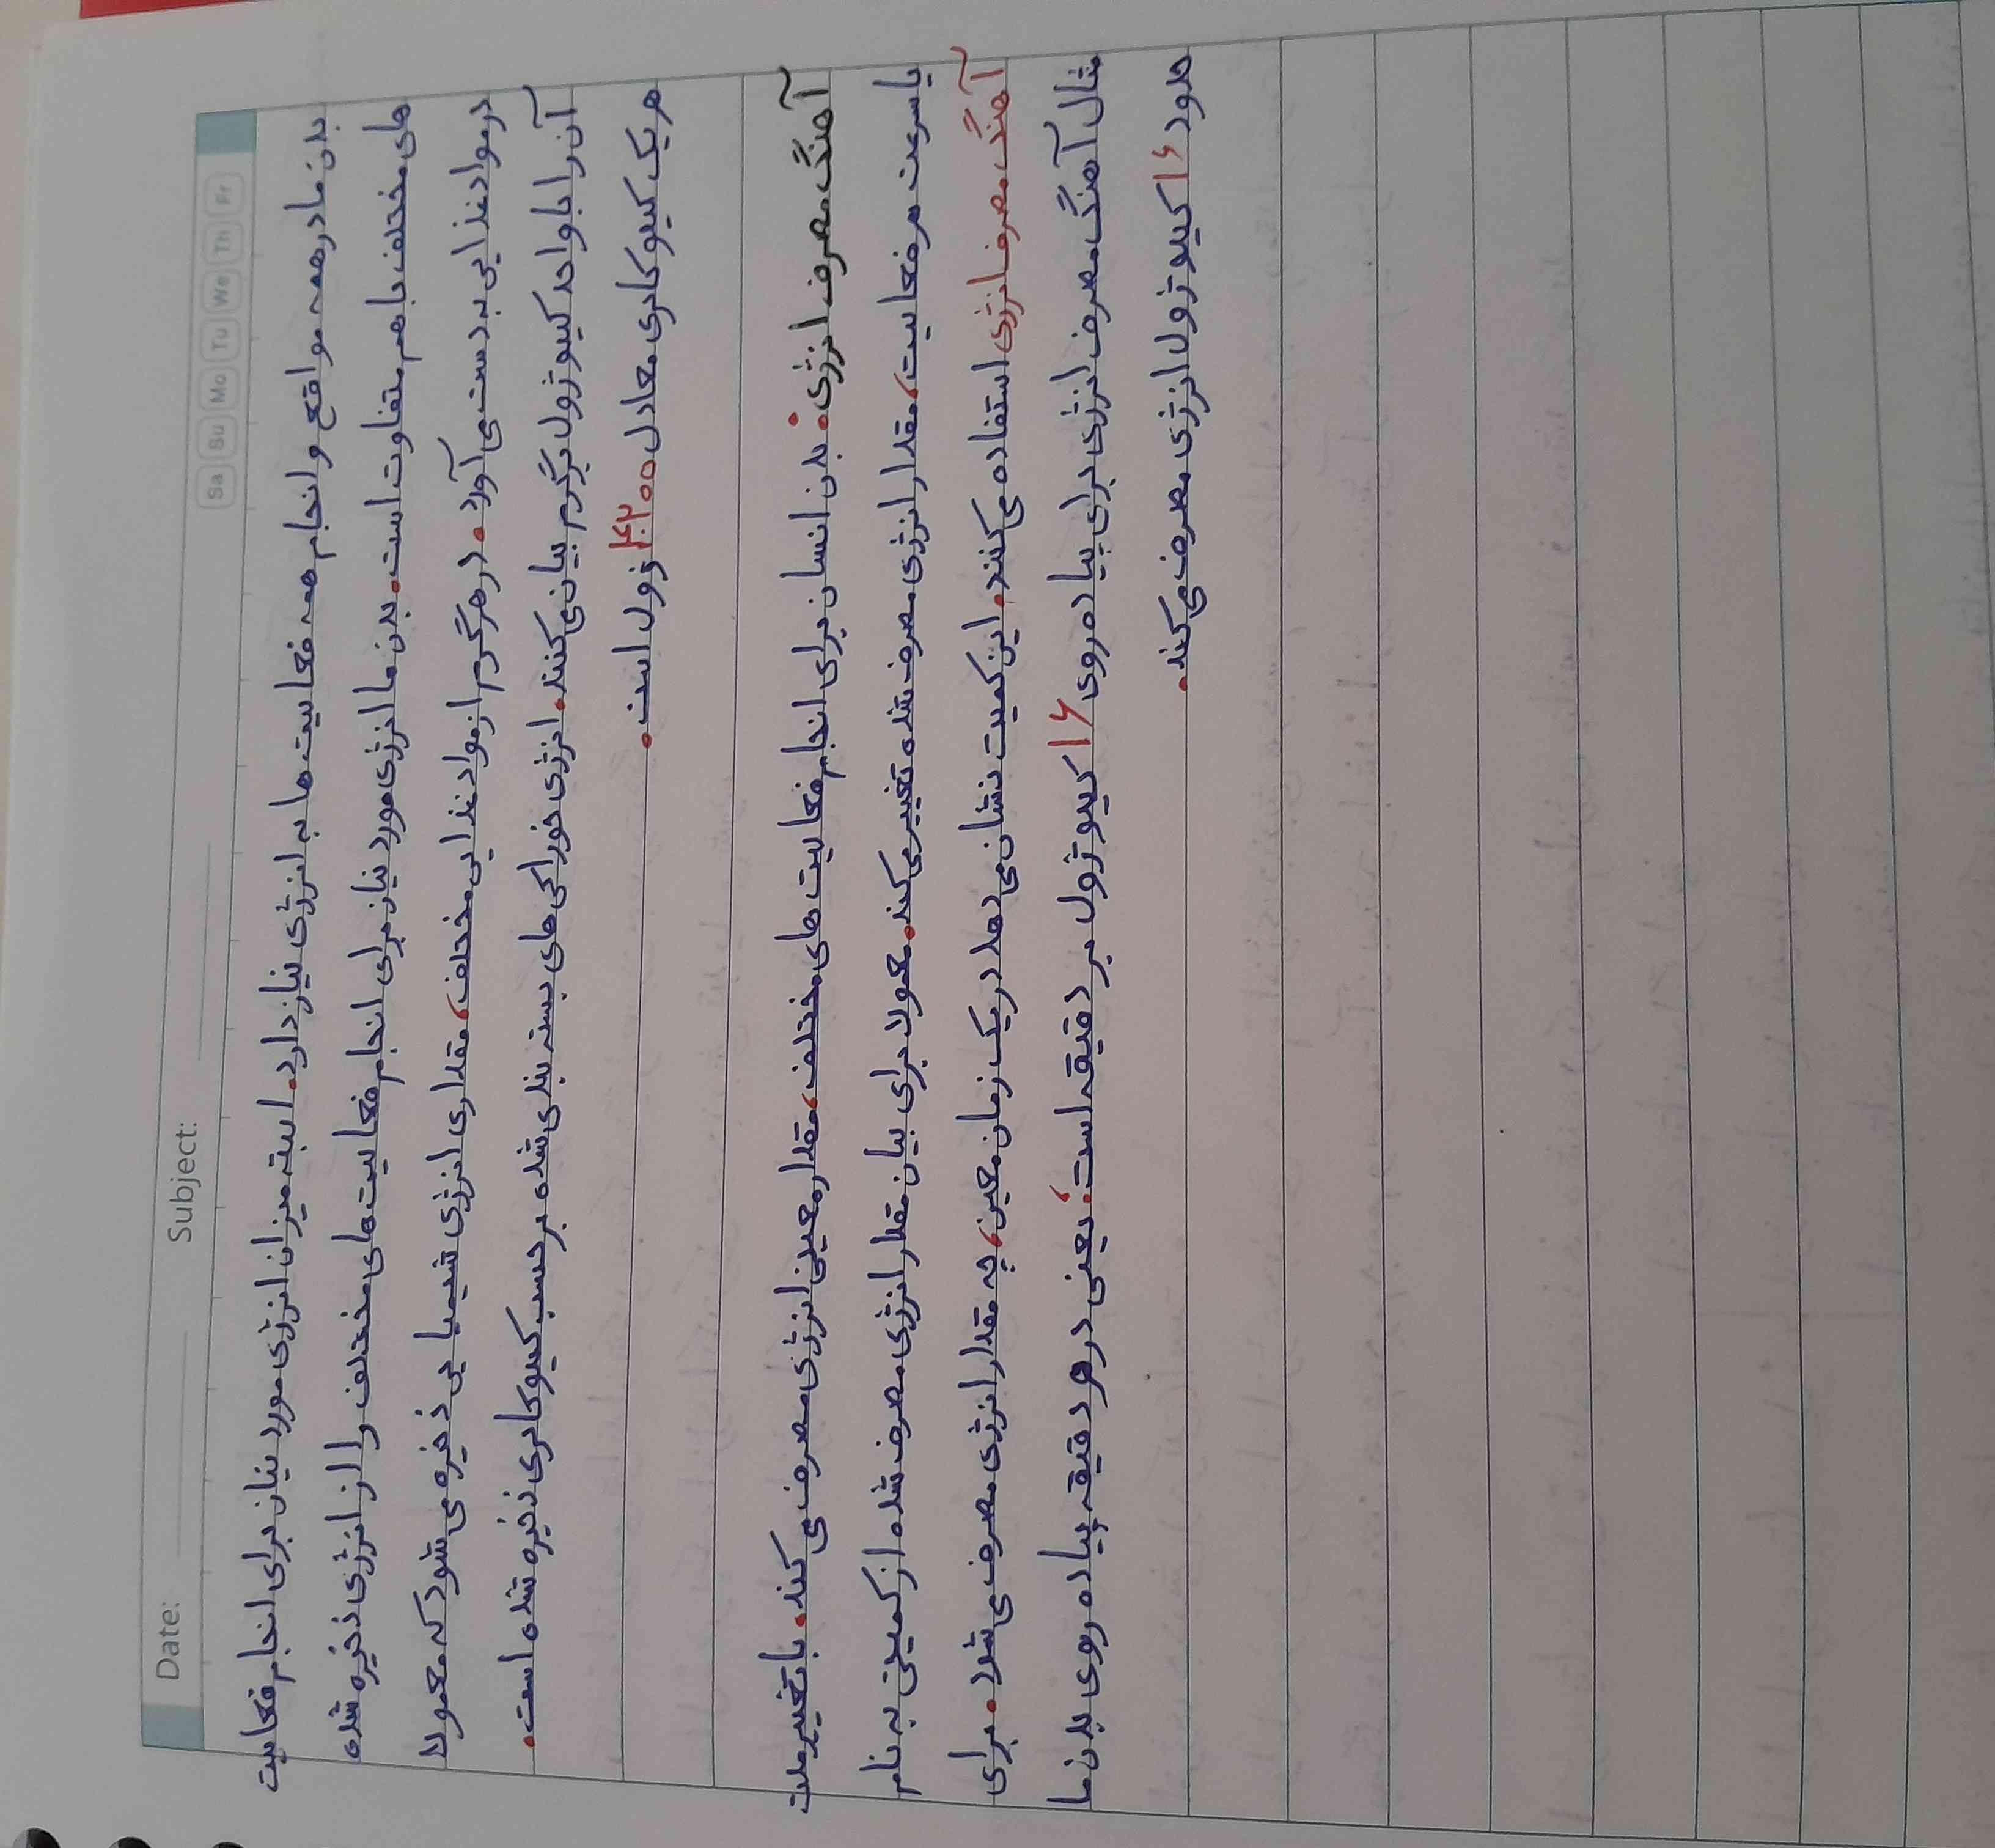 Date: Subject: Sa Su Mo Tu We Th Fr
بدن ما در همه مواقع و انجام همه فعالیت ها به انرژی نیاز دارد. البته میزان انرژی مورد نیاز برای انجام فعالیت
های مختلف با هم متفاوت است. بدن ما انرژی مورد نیاز برای انجام فعالیت های مختلف را از انرژی ذخیره شده
در مواد غذایی به دست می آورد. در هر گرم از مواد غذایی مختلف، مقداری انرژی شیمیایی ذخیره می شود که معمولا
آن را با واحد کیلوژول برگرم بیان می کنند. انرژی خوراکی های بسته بندی شده بر حسب کیلوکالری ذخیره شده است.
هر یک کیلوکالری معادل ۴۲۰۰ ژول است.
آهنگ مصرف انرژی: بدن انسان برای انجام فعالیت های مختلف، مقدار معینی انرژی مصرف می کند. با تغییر مدت
یا سرعت هر فعالیت، مقدار انرژی مصرف شده تغییر می کند. معمولا برای بیان مقدار انرژی مصرف شده از کمیتی به نام
آهنگ مصرف انرژی استفاده می کنند. این کمیت نشان می دهد در یک زمان معین، چه مقدار انرژی مصرف می شود. برای
مثال آهنگ مصرف انرژی برای پیاده روی ۱۶ کیلوژول بر دقیقه است؛ یعنی در هر دقیقه پیاده روی بدن ما
حدود ۱۶ کیلوژول انرژی مصرف می کند.